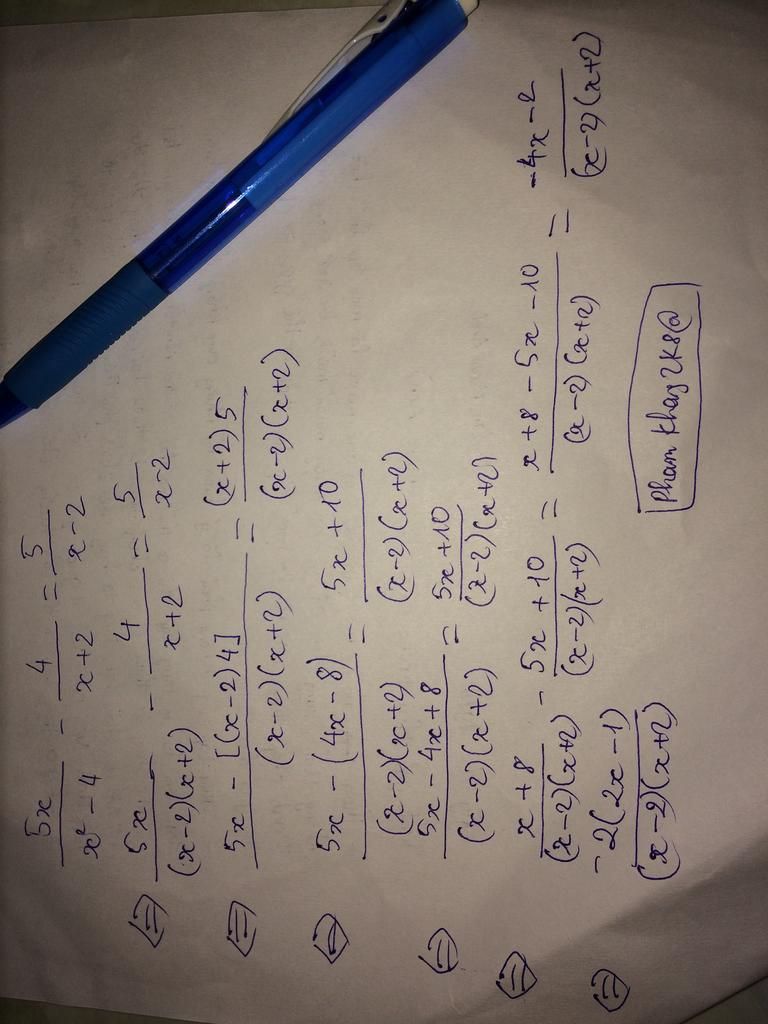 5x/(x² - 4) - 4/(x+2) = 5/(x-2)
⇔ 5x/((x-2)(x+2)) - 4/(x+2) = 5/(x-2)
⇔ (5x - [(x-2)4])/((x-2)(x+2)) = ((x+2)5)/((x-2)(x+2))
⇔ (5x - (4x-8))/((x-2)(x+2)) = (5x+10)/((x-2)(x+2))
⇔ (5x - 4x + 8)/((x-2)(x+2)) = (5x+10)/((x-2)(x+2))
⇔ (x+8)/((x-2)(x+2)) - (5x+10)/((x-2)(x+2)) = (x+8-5x-10)/((x-2)(x+2)) = (-4x-2)/((x-2)(x+2))
⇔ (-2(2x-1))/((x-2)(x+2))
Pham Khag 2K8@